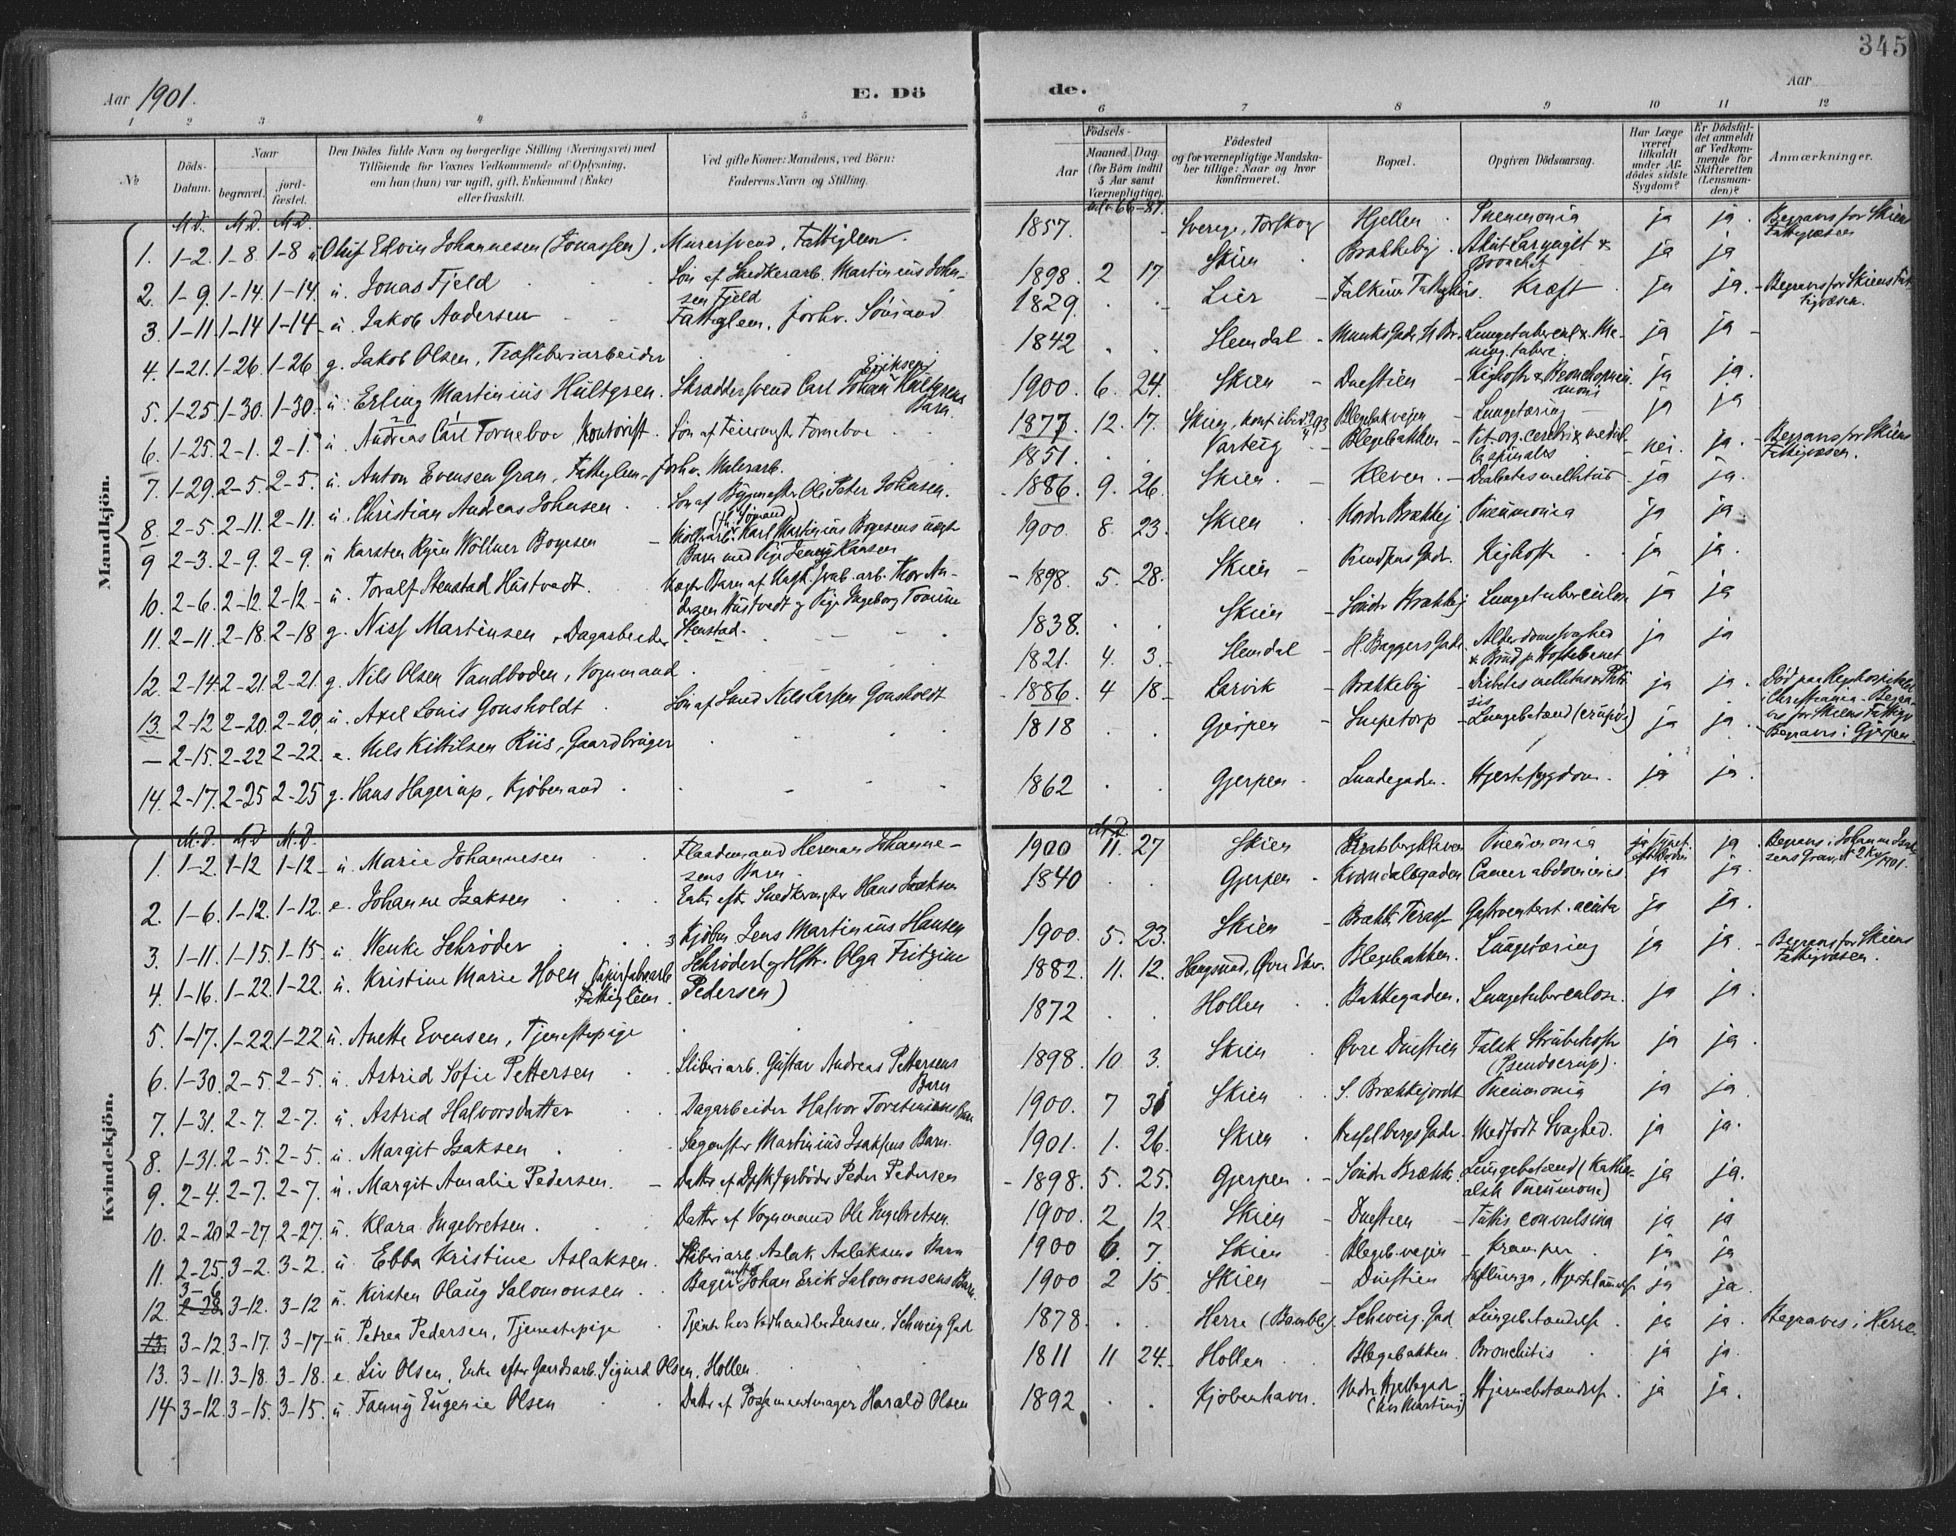 345
Aar 1901.
E. Dö
de.
Aar
1 2 3 4 5 6 7 8 9 10 11 12
No
Döds-Datum.
Naar
begravet.
jord-fæstet.
Den Dödes fulde Navn og borgerlige Stilling (Næringsvei) med
Tilföiende for Voxnes Vedkommende af Oplysning,
om han (hun) var ugift, gift, Enkemand (Enke)
eller fraskilt.
Ved gifte Koner: Mandens, ved Börn:
Faderens Navn og Stilling.
Födsels-
Aar
Maaned. Dag.
(for Börn indtil
5 Aar samt
Værnepligtige).
Födested
og for værnepligtige Mandska-
ber tillige: Naar og hvor
konfirmeret.
Bopæl.
Opgiven Dödsaarsag.
Har Læge
været
tilkaldt
under Af-
dödes sidste
Sygdom?
Er Dödsfal-
det anmeldt
af Vedkom-
mende for
Skifteretten
(Lensman-
den)?
Anmærkninger.
Mandkjön.
M.D. M.D. M.D.
1. 1-2. 1-8. 1-8 u. Oluf Edvin Johannesen (Jonassen). Murersvend, Fattiglem. 1857. Sverige, Torskog Hjellen. Pneumonia ja ja. Begraves for Skiens Fattigvæsen
2. 1-9. 1-14. 1-14 u. Jonas Fjeld Søn af Snedkerarb. Martinius Johnsen Fjeld 1898. 2 17. Skien Brækkeby Akut Laryngit & Bronchit ja ja
3 1-11. 1-14 1-14 u. Jakob Andersen Fattiglem, forhv. Sømand 1829. Lier Kræft ja ja. Begraves for Skiens Fattigvæsen.
4. 1-21. 1-26. 1-26 g. Jakob Olsen, Træsliberiarbeider 1842 Slemdal ja ja
5. 1-25. 1-30. 1-30 u. Erling Martinius Hultgren. Skræddersvend Carl Johan Eriksen Hultgrens Barn. 1900. 6. 24. Skien Duestien Kighoste & Bronchopneumoni ja ja.
6. 1-25. 2-1. 2-1. u. Andreas Carl Torneboe, Kontorist. Søn af Feiermgtr Torneboe 1877. 12. 17. Skien, Blegebakveien Lungetæring ja ja
7. 1-29. 2-5. 2-5. u. Anton Evensen Gran, Fattiglem, forhv. Malerarb. 1851. Varteig Blegebakken nei. ja. Begraves for Skiens Fattigvæsen.
8. 2-5. 2-11. 2-11. u. Christian Andreas Johnsen Søn af Byggmester Ole Peter Johnsen. 1886. 9. 26. Skien. Kleven. Diabetes mellitus ja ja.
9 2-3. 2-9. 2-9. u Karsten Ryen Wöllner Boyesen Karl Martinius Boyesens uægt Barn med Pige Jenny Hansen 1900 8. 23. Skien Nordre Brækkeby Pneumonia ja ja.
10. 2-6. 2-12. 2-12. u. Toralf Stenstad Hustvedt. Uægte Barn af Andersen Hustvedt og Pige Ingeborg Tomine Stenstad. 1898. 5. 28. Skien Kighoste ja ja.
11. 2-11. 2-18. 2-18 g. Niss Martinsen, Dagarbeider 1838. Skien Søndre Brækkeby Lungetuberculose ja ja
12. 2-14. 2-21. 2-21. g. Nils Olsen Vandboden, Vognmand 1821. 4. 3. Slemdal H. Baggers Gade. Alderdomsvaghed & Brud paa Hoftebenet ja ja
13. 2-12 2-20. 2-20. u. Axel Louis Gonsholdt Søn af Smed Nils Larsen Gonsholdt 1886. 4 18 Larvik Brækkeby Diabetes mellitus ja ja. Død paa Righospitalet i Christiania. Begraves for Skiens Fattigv.
— 2-15. 2-22 2-22. e. Nils Kittilsen Riis, Gaardbruger 1818 Gjerpen Snipetorp Lungebetænd (crupøs) ja ja. Begraves i Gjerpen.
14. 2-17. 2-25 2-25 g. Hans Hagerup, Kjøbmand 1862 Gjerpen. Lundegaden. Hjertesygdom. ja ja.
Kvindekjön.
M.D. M.D. M.D.
1. 1-2. 1-12 1-12 u. Marie Johannesen Flaademand Herman Johannesens Barn. 1900 11. 27 Skien Pneumonia ja ja Begraves i Johanne Isaksens Grav
2. 1-6. 1-12. 1-12. e. Johanne Isaksen Enke efter Snedkermgtr Hans Isaksen 1840 Gjerpen Kverndalsgaden Cancer abdominis ja ja.
3. 1-11. 1-15. 1-15 u. Wenke Schrøder Kjøbm Jens Martinius Hansen Schrøder og Hstr. Olga Fritzine Pedersen) 1900. 5. 23. Skien Brækkeby Terasse Gastroenterit. acuta ja ja.
4. 1-16. 1-22. 1-22. u. Kristine Marie Hoen Papirfabrarb Fattiglem. 1882. 11. 12. Haugsund, Øvre Eker. Blegebakken. Lungetæring ja ja. Begraves for Skiens Fattigvæsen.
5. 1-17. 1-22. 1-22 u. Anette Evensen, Tjenestepige 1872 Hollen Bakkegaden. Lungetuberculose. ja ja.
6. 1-30. 2-5. 2-5. u. Astrid Sofie Pettersen Sliberiarb. Gustav Andreas Pettersens Barn 1898. 10 3. Skien Øvre Duestien Falsk Strubehoste (Pseudocrup). ja ja.
7. 1-31. 2-7. 2-7. u. Astrid Halvorsdatter Dagarbeider Halvor Torstensens Barn 1900. 7 31 Skien S. Brækkejordet Pneumonia ja ja
8. 1-31. 2-5. 2-5. u. Margit Isaksen Sagmester Martinius Isaksens Barn. 1901. 1. 26. Skien Hesselbergs Gade. Medfødt Svaghed. ja ja.
9. 2-4. 2-7. 2-7. u. Margit Amalie Pedersen. Datter af Dpsk. fyrbøder Peder Pedersen 1898. 5. 25. Gjerpen Søndre Brækk. Lungebetænd (Katharalsk Pneumoni) ja ja.
10. 2-20 2-27 2-27. u. Klara Ingebretsen. Datter af Vognmand Ole Ingebretsen. 1900. 2 12. Skien Duestien Tussis convulsiva ja ja
11. 2-25. 3-2. 3-2. u. Ebba Kristine Aslaksen. Sliberiarb. Aslak Aslaksens Barn 1900 6. 7. Skien Blegeb.veien Kramper ja ja
12. 3-6 2-28. 3-12. 3-12 u. Kirsten Olaug Salomonsen Bagermester Johan Erik Salomonsens Barn. 1900 2 15. Skien Duestien Influenza, ja ja.
13. 3-12 3-17. 3-17 u. Petrea Pedersen, Tjenestepige Tjente hos Vedhandler Jensen, Schweig. Gad 1878. Herre (Bamble). Schweig. Gad Lungebetændelse. ja ja. Begraves i Herre.
13. 3-11. 3-18. 3-18. e. Liv Olsen, Enke efter Gaardsarb. Sigurd Olsen, Hollen. 1811 11 24. Hollen Blegebakken. Bronchitis ja ja.
14 3-12. 3-15. 3-15. u. Fanny Eugenie Olsen Datter af Possementmager Harald Olsen 1892 Kjøbenhavn. Nedre Hjellegad (hos Martini) Hjernebetændelse ja ja.